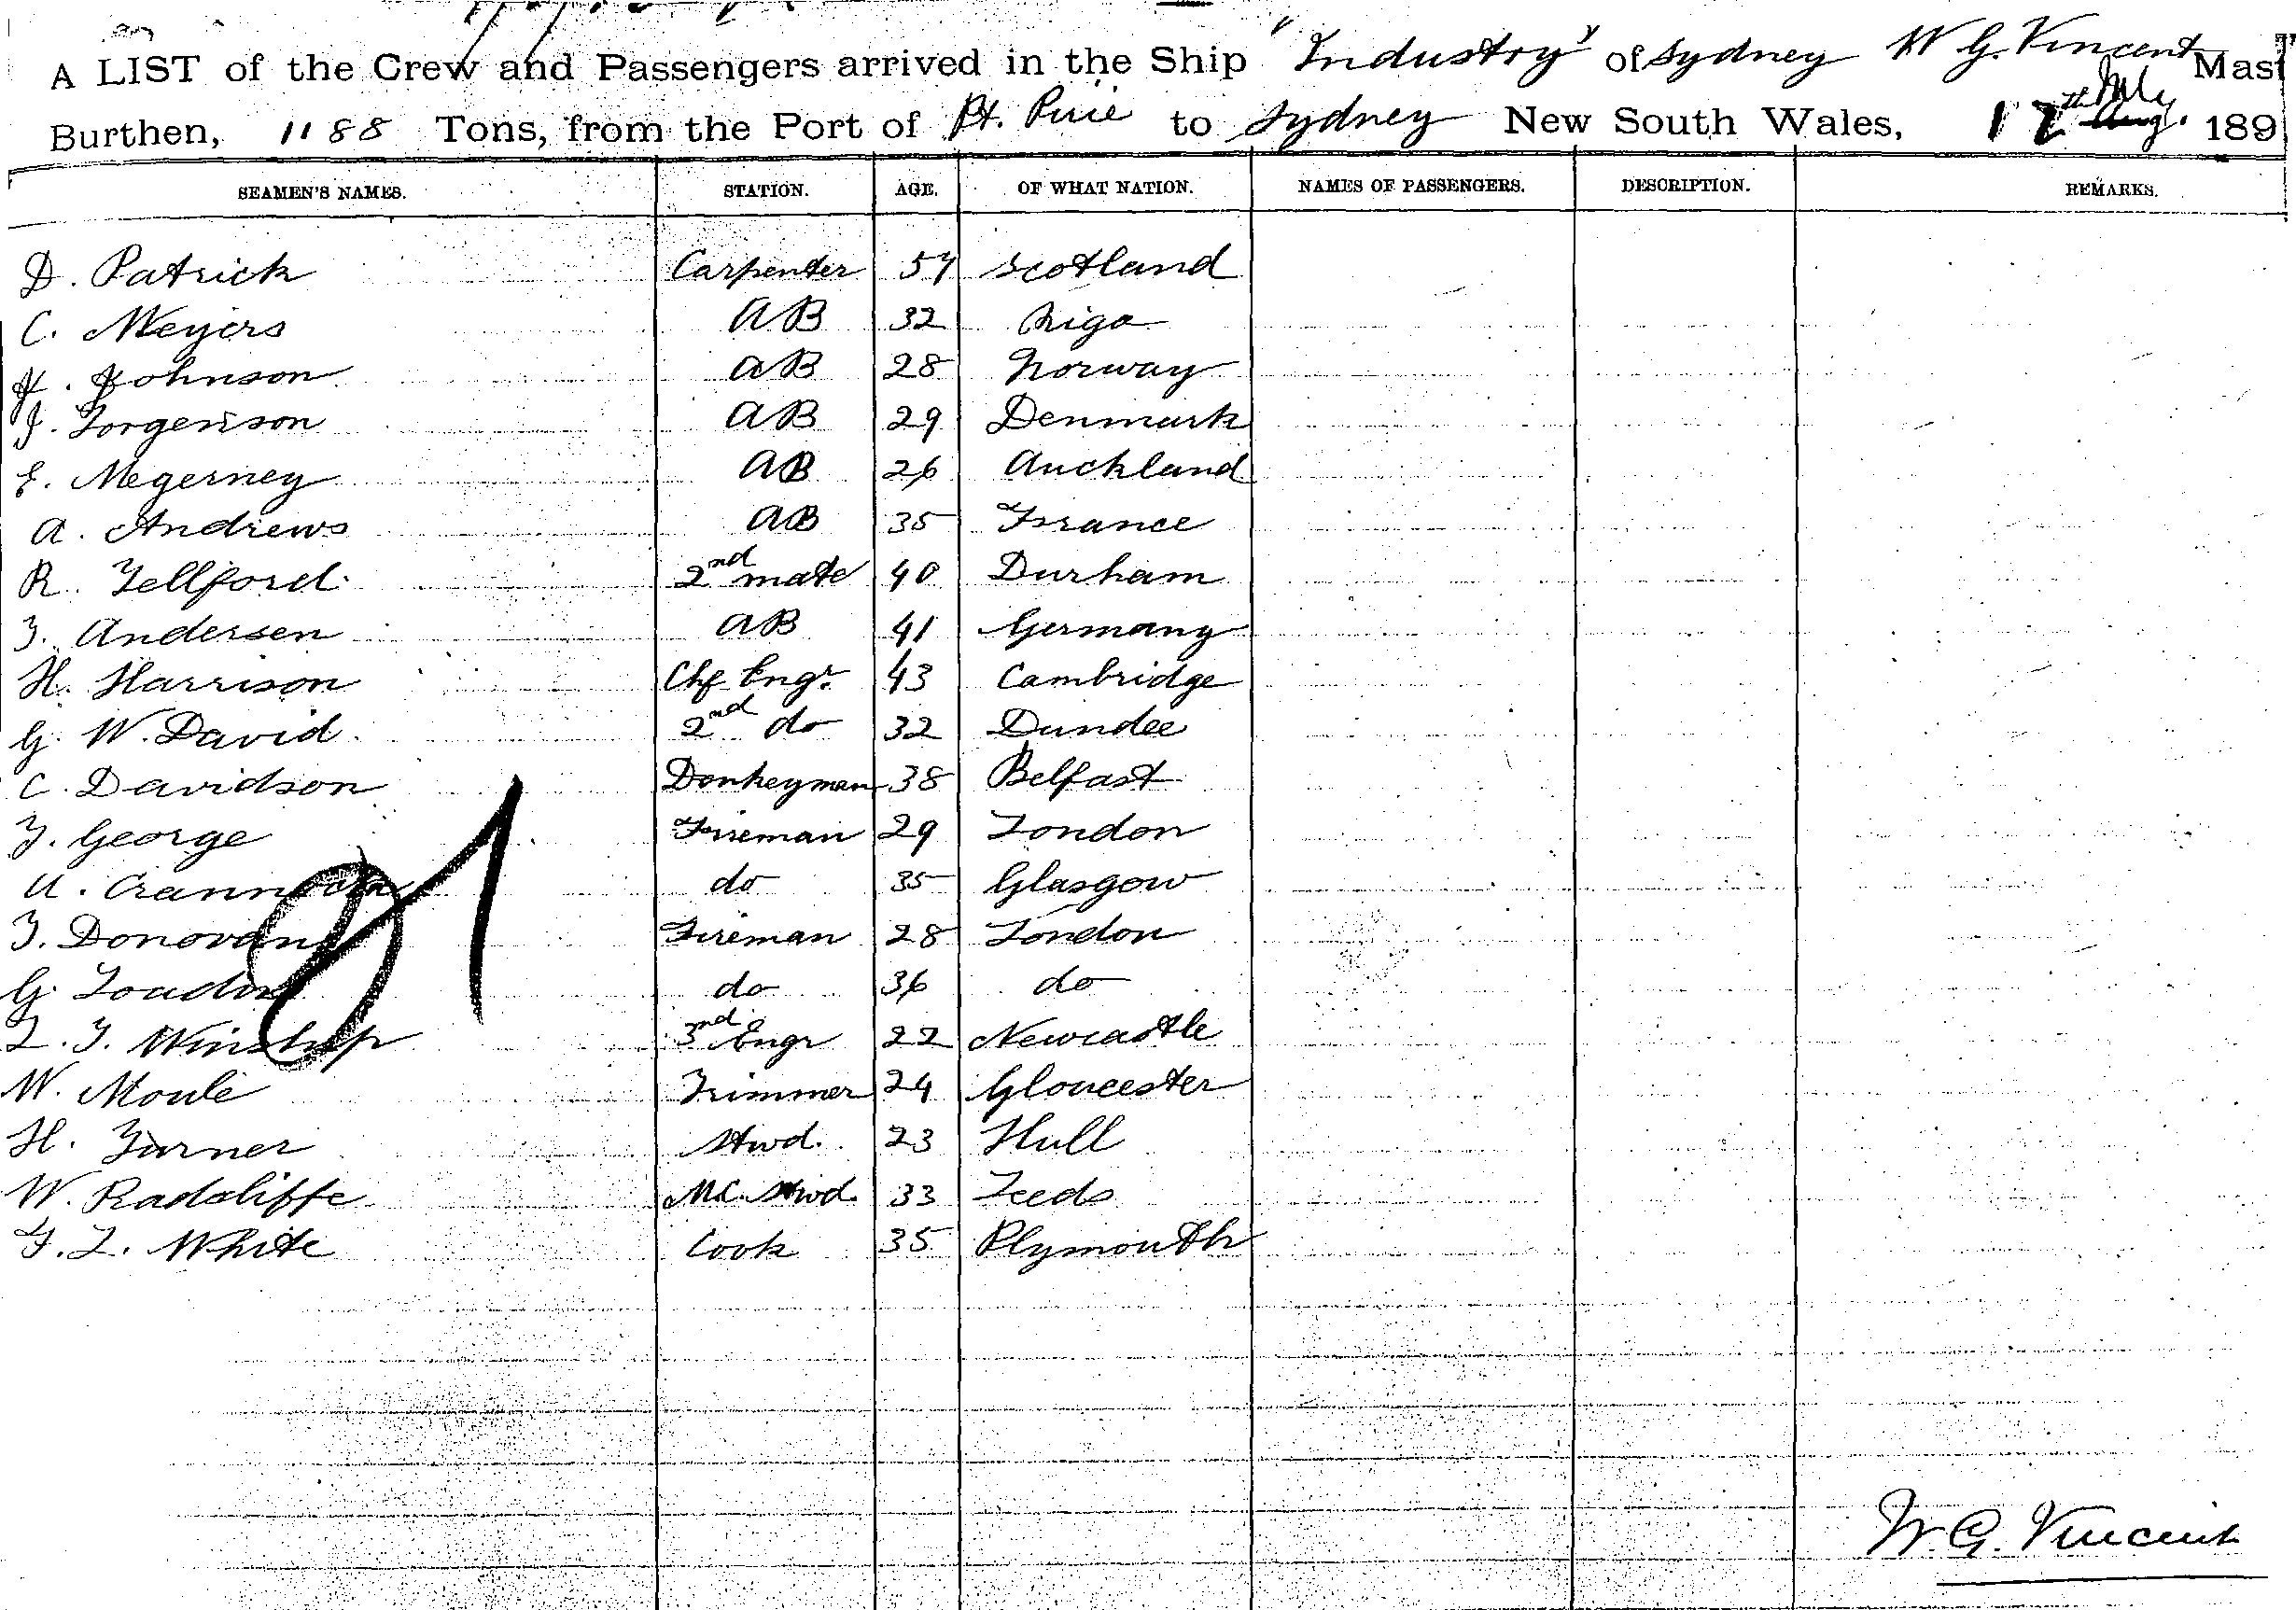 A LIST of the Crew and Passengers arrived in the Ship "Industry" of Sydney W G. Vincent Mast
Burthen, 1188 Tons, from the Port of Pt. Pirie to Sydney New South Wales, 12th July Aug. 189
SEAMEN'S NAMES. STATION. AGE. OF WHAT NATION. NAMES OF PASSENGERS. DESCRIPTION. REMARKS.
D. Patrick Carpenter 57 Scotland
C. Meyers AB 32 Riga
J. Johnson AB 28 Norway
J. Jorgenson AB 29 Denmark
E. Megerney AB 26 Auckland
A. Andrews AB 35 France
R. Tellford 2nd mate 40 Durham
J. Andersen AB 41 Germany
H. Harrison Chf Engr. 43 Cambridge
G. W. David 2nd do 32 Dundee
C. Davidson Donkeyman 38 Belfast
J. George Fireman 29 London
A. do 35 Glasgow
J. Donovan Fireman 28 London
G. do 36 do
L. J. Winship 3rd Engr 22 Newcastle
W. Moule Trimmer 24 Gloucester
H. Turner Stwd. 23 Hull
W. Radcliffe M.C. Stwd. 33 Leeds
F. L. White Cook 35 Plymouth
91
W. G. Vincent